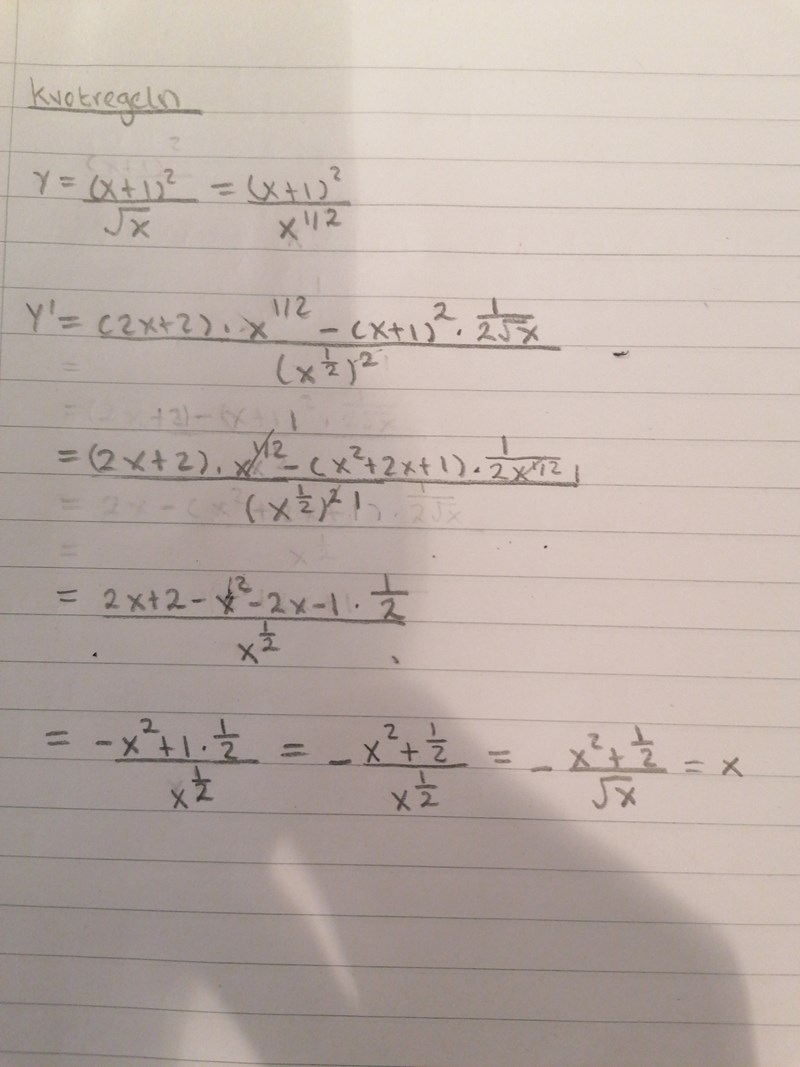 Kvotregeln
y = (x+1)² / √x = (x+1)² / x^1/2
y' = (2x+2) · x^1/2 - (x+1)² · 1/(2√x) / (x^1/2)²
= (2x+2) · x^1/2 - (x²+2x+1) · 1/(2x^1/2) / (x^1/2)²
= 2x+2 - x² - 2x - 1 · 1/2 / x^1/2
= -x² + 1 · 1/2 / x^1/2 = - x² + 1/2 / x^1/2 = - x² + 1/2 / √x = x